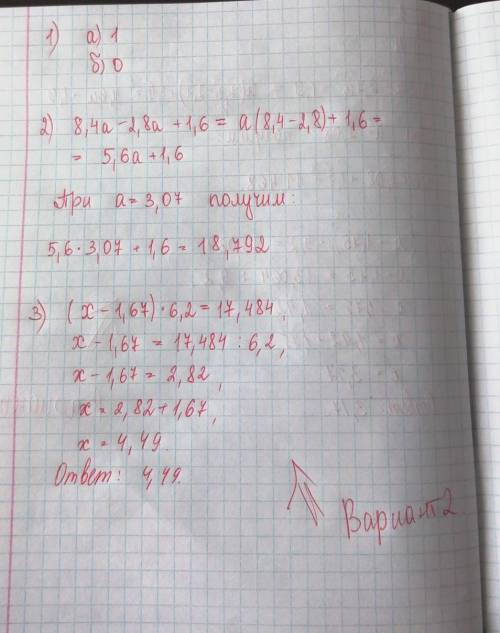 1) а) 1
б) 0
2) 8,4а - 2,8а + 1,6 = а(8,4 - 2,8) + 1,6 =
= 5,6а + 1,6
При а = 3,07 получим:
5,6 · 3,07 + 1,6 = 18,792
3) (х - 1,67) · 6,2 = 17,484,
х - 1,67 = 17,484 : 6,2,
х - 1,67 = 2,82,
х = 2,82 + 1,67,
х = 4,49.
Ответ: 4,49.
Вариант 2.